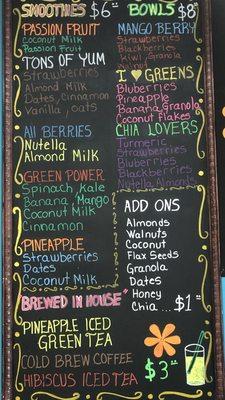 SMOOTHIES $6
PASSION FRUIT
Coconut Milk
Passion Fruit
TONS OF YUM
Strawberries
Almond Milk
Dates, Cinnamon
Vanilla, oats
All BERRIES
Nutella
Almond Milk
GREEN POWER
Spinach, Kale
Banana, Mango
Coconut Milk
Cinnamon
PINEAPPLE
Strawberries
Dates
Coconut Milk
BREWED IN HOUSE
PINEAPPLE ICED
GREEN TEA
COLD BREW COFFEE
HIBISCUS ICED TEA
$3
BOWLS $8
MANGO BERRY
Strawberries
Blackberries
Kiwi, Granola
Walnut
I ♥ GREENS
Bluberries
Pineapple
Banana, Granola
Coconut Flakes
CHIA LOVERS
Turmeric
Strawberries
Bluberries
Blackberries
Nutella Almonds
ADD ONS
Almonds
Walnuts
Coconut
Flax Seeds
Granola
Dates
Honey
Chia ... $1